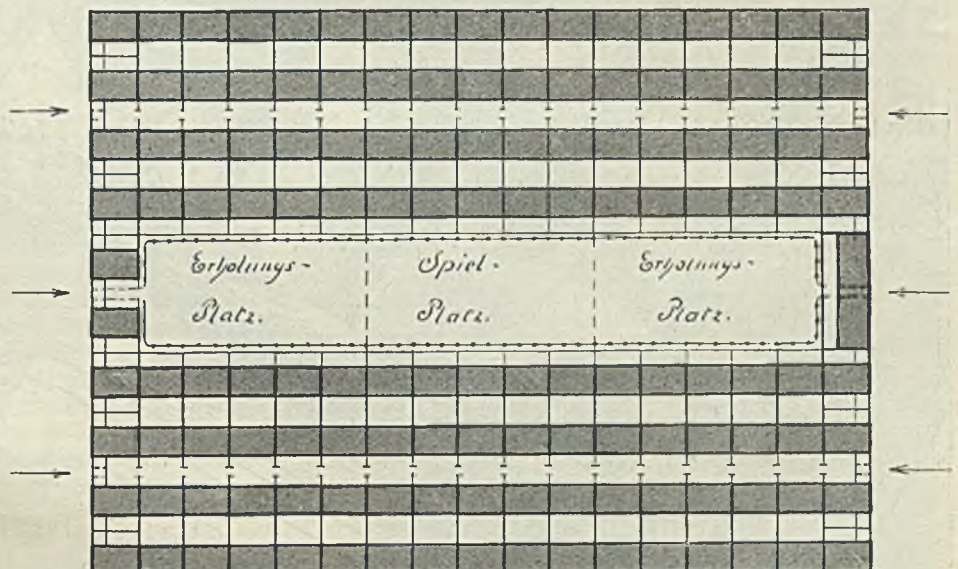 Erholungs-
Platz.
Spiel-
Platz.
Erholungs-
Platz.